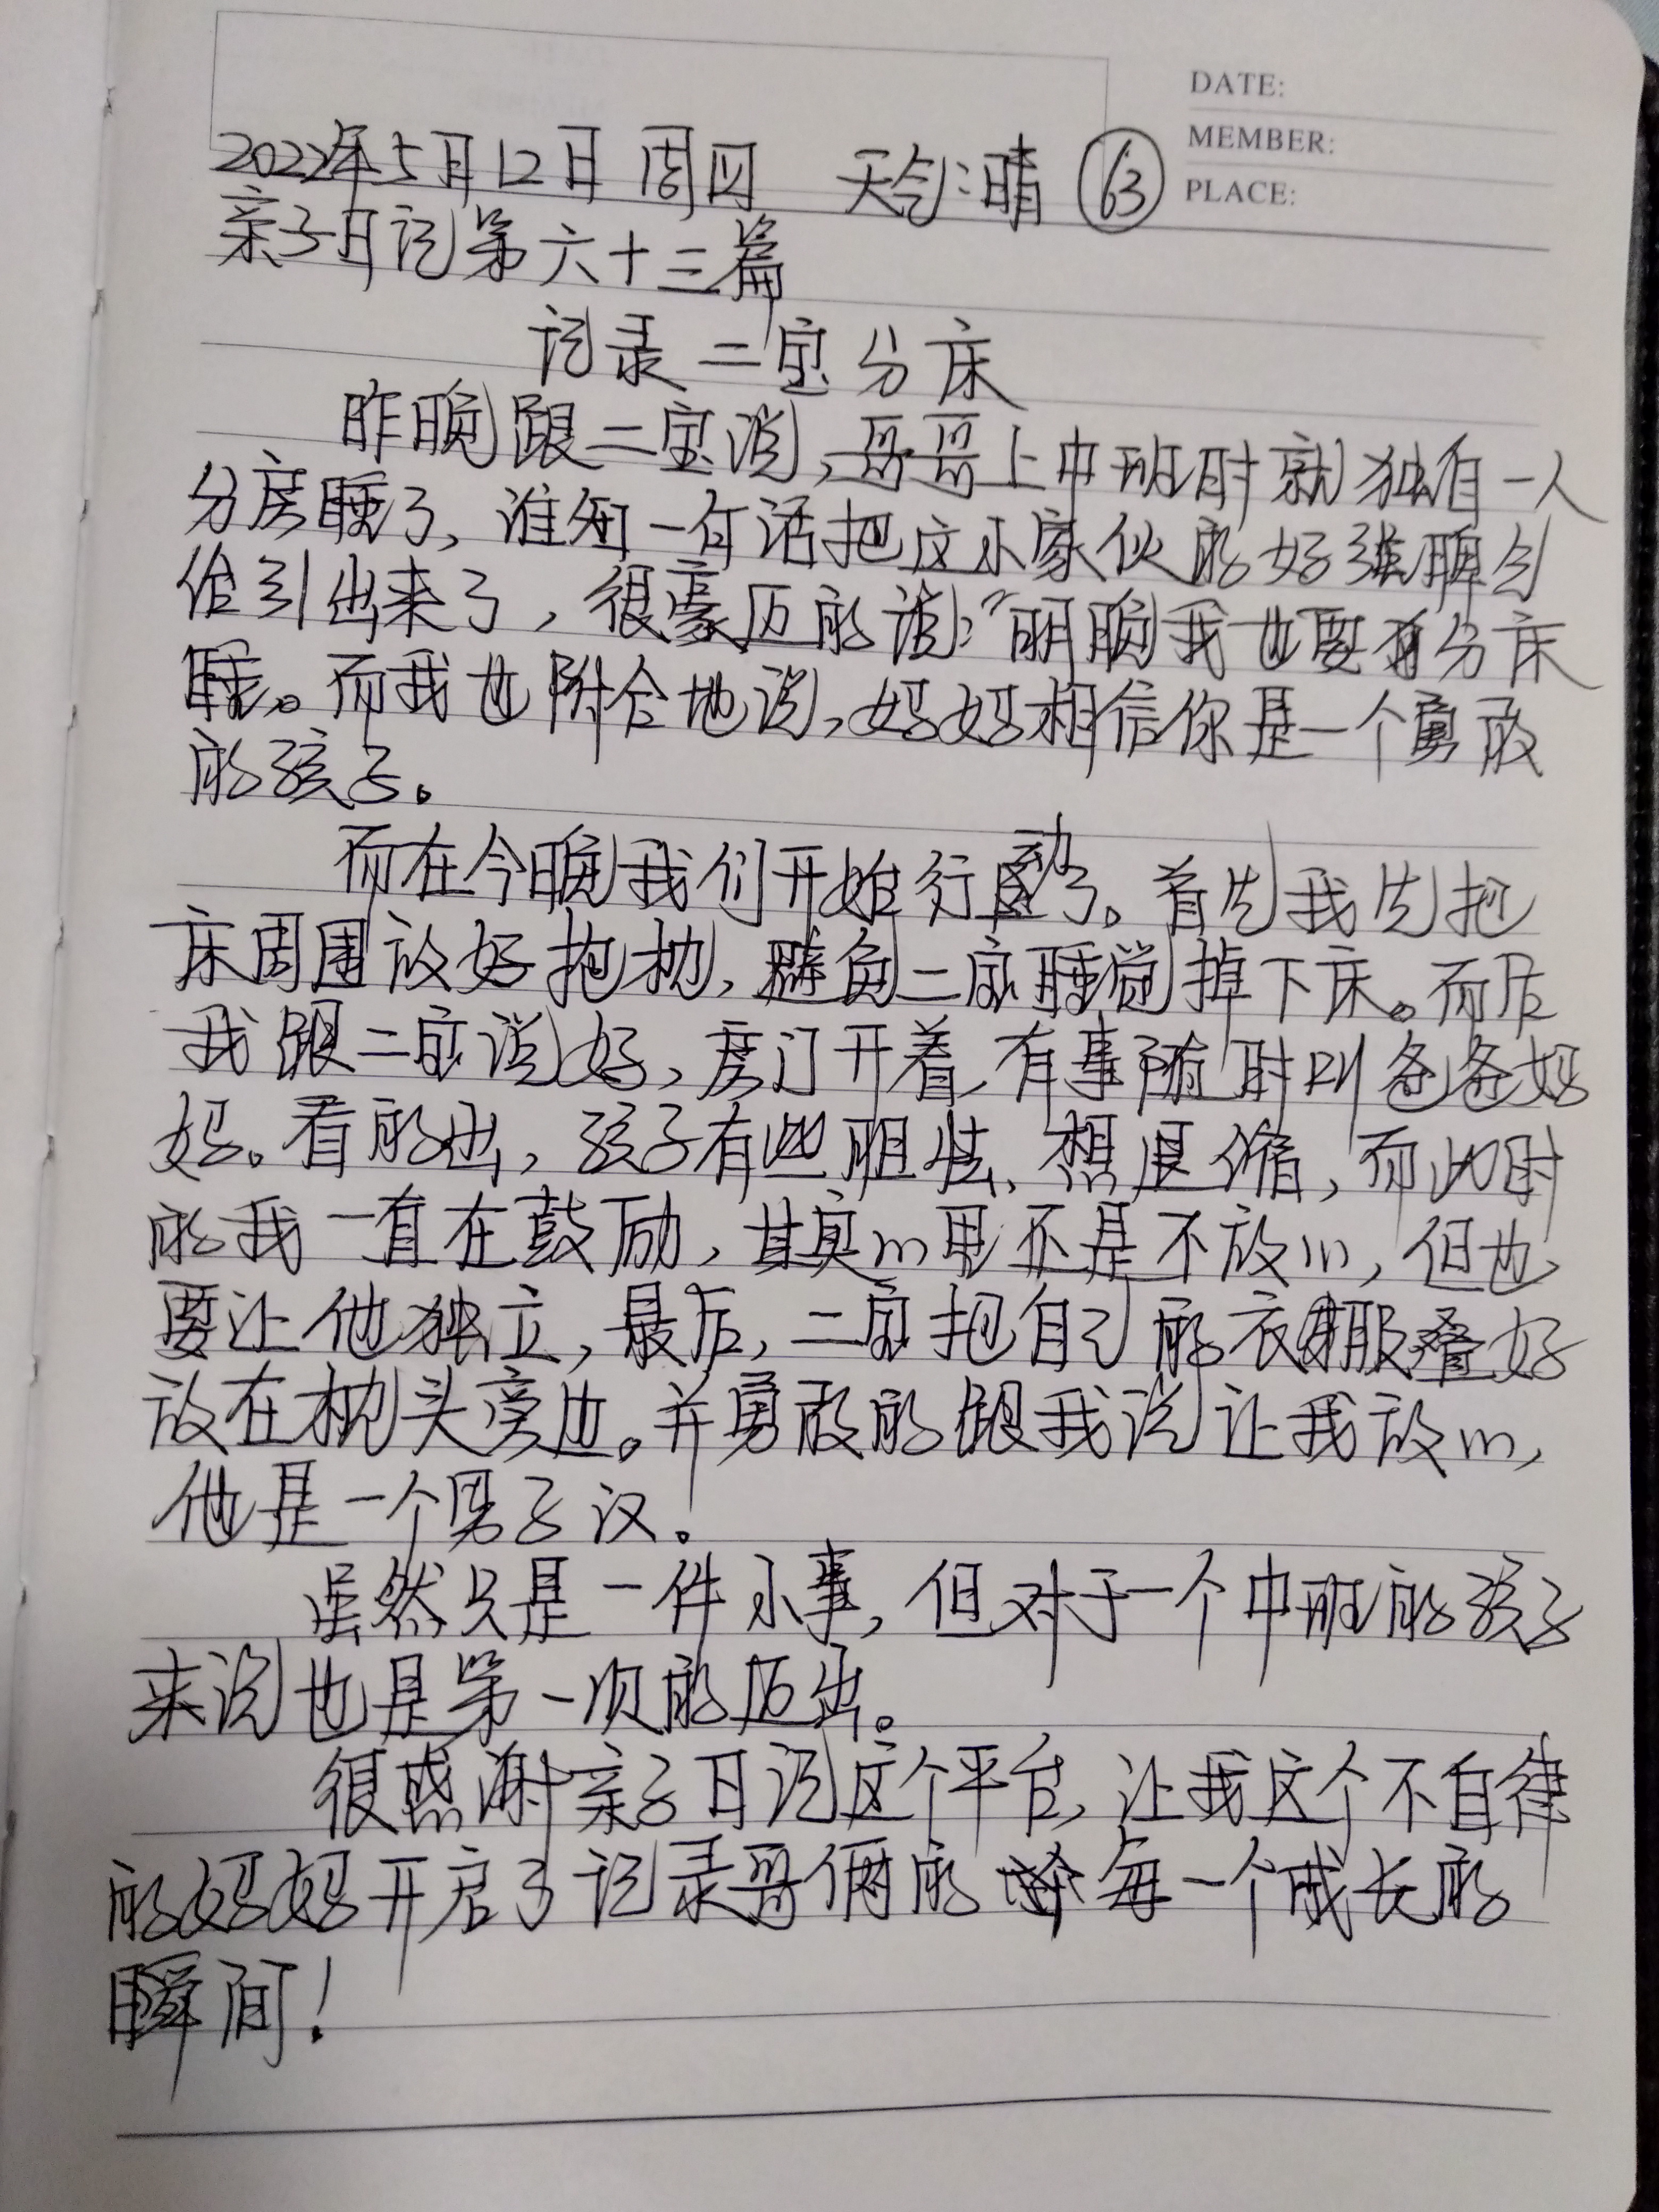 DATE:
MEMBER:
PLACE:
2022年5月12日 周四 天气:晴 63
亲子日记第六十三篇
记录二宝分床
昨晚跟二宝说,哥哥上中班时就独自一人
分房睡了,谁知一句话把这小家伙的好强脾气
给引出来了,很豪历的说:"明晚我也要分床
睡。而我也附合地说,妈妈相信你是一个勇敢
的孩子。
而在今晚我们开始行动了。首先我先把
床周围放好抱枕,避免二宝睡觉掉下床。而后
我跟二宝说好,房门开着,有事随时叫爸爸妈
妈。看的出,孩子有些胆怯,想退缩,而此时
的我一直在鼓励,其实心里不是不放心,但也
要让他独立,最后,二宝把自己的衣服叠好
放在枕头旁边。并勇敢的跟我说让我放心,
他是一个男子汉。
虽然只是一件小事,但对于一个中班的孩子
来说也是第一次的历出。
很感谢亲子日记这个平台,让我这个不自律
的妈妈开启了记录哥俩的每一个成长的
瞬间!